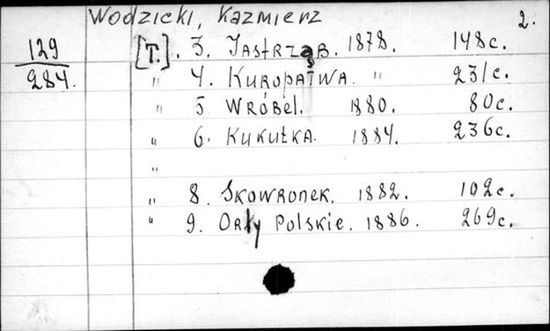 Wodzicki, Kazmierz 2.
129 [T.]. 3. Jastrząb. 1878. 148c.
284. " 4. Kuropatwa. " 231c.
" 5 Wróbel. 1880. 80c.
" 6. Kukułka. 1884. 236c.
"
" 8. Skowronek. 1882. 102c.
" 9. Orły Polskie. 1886. 269c.